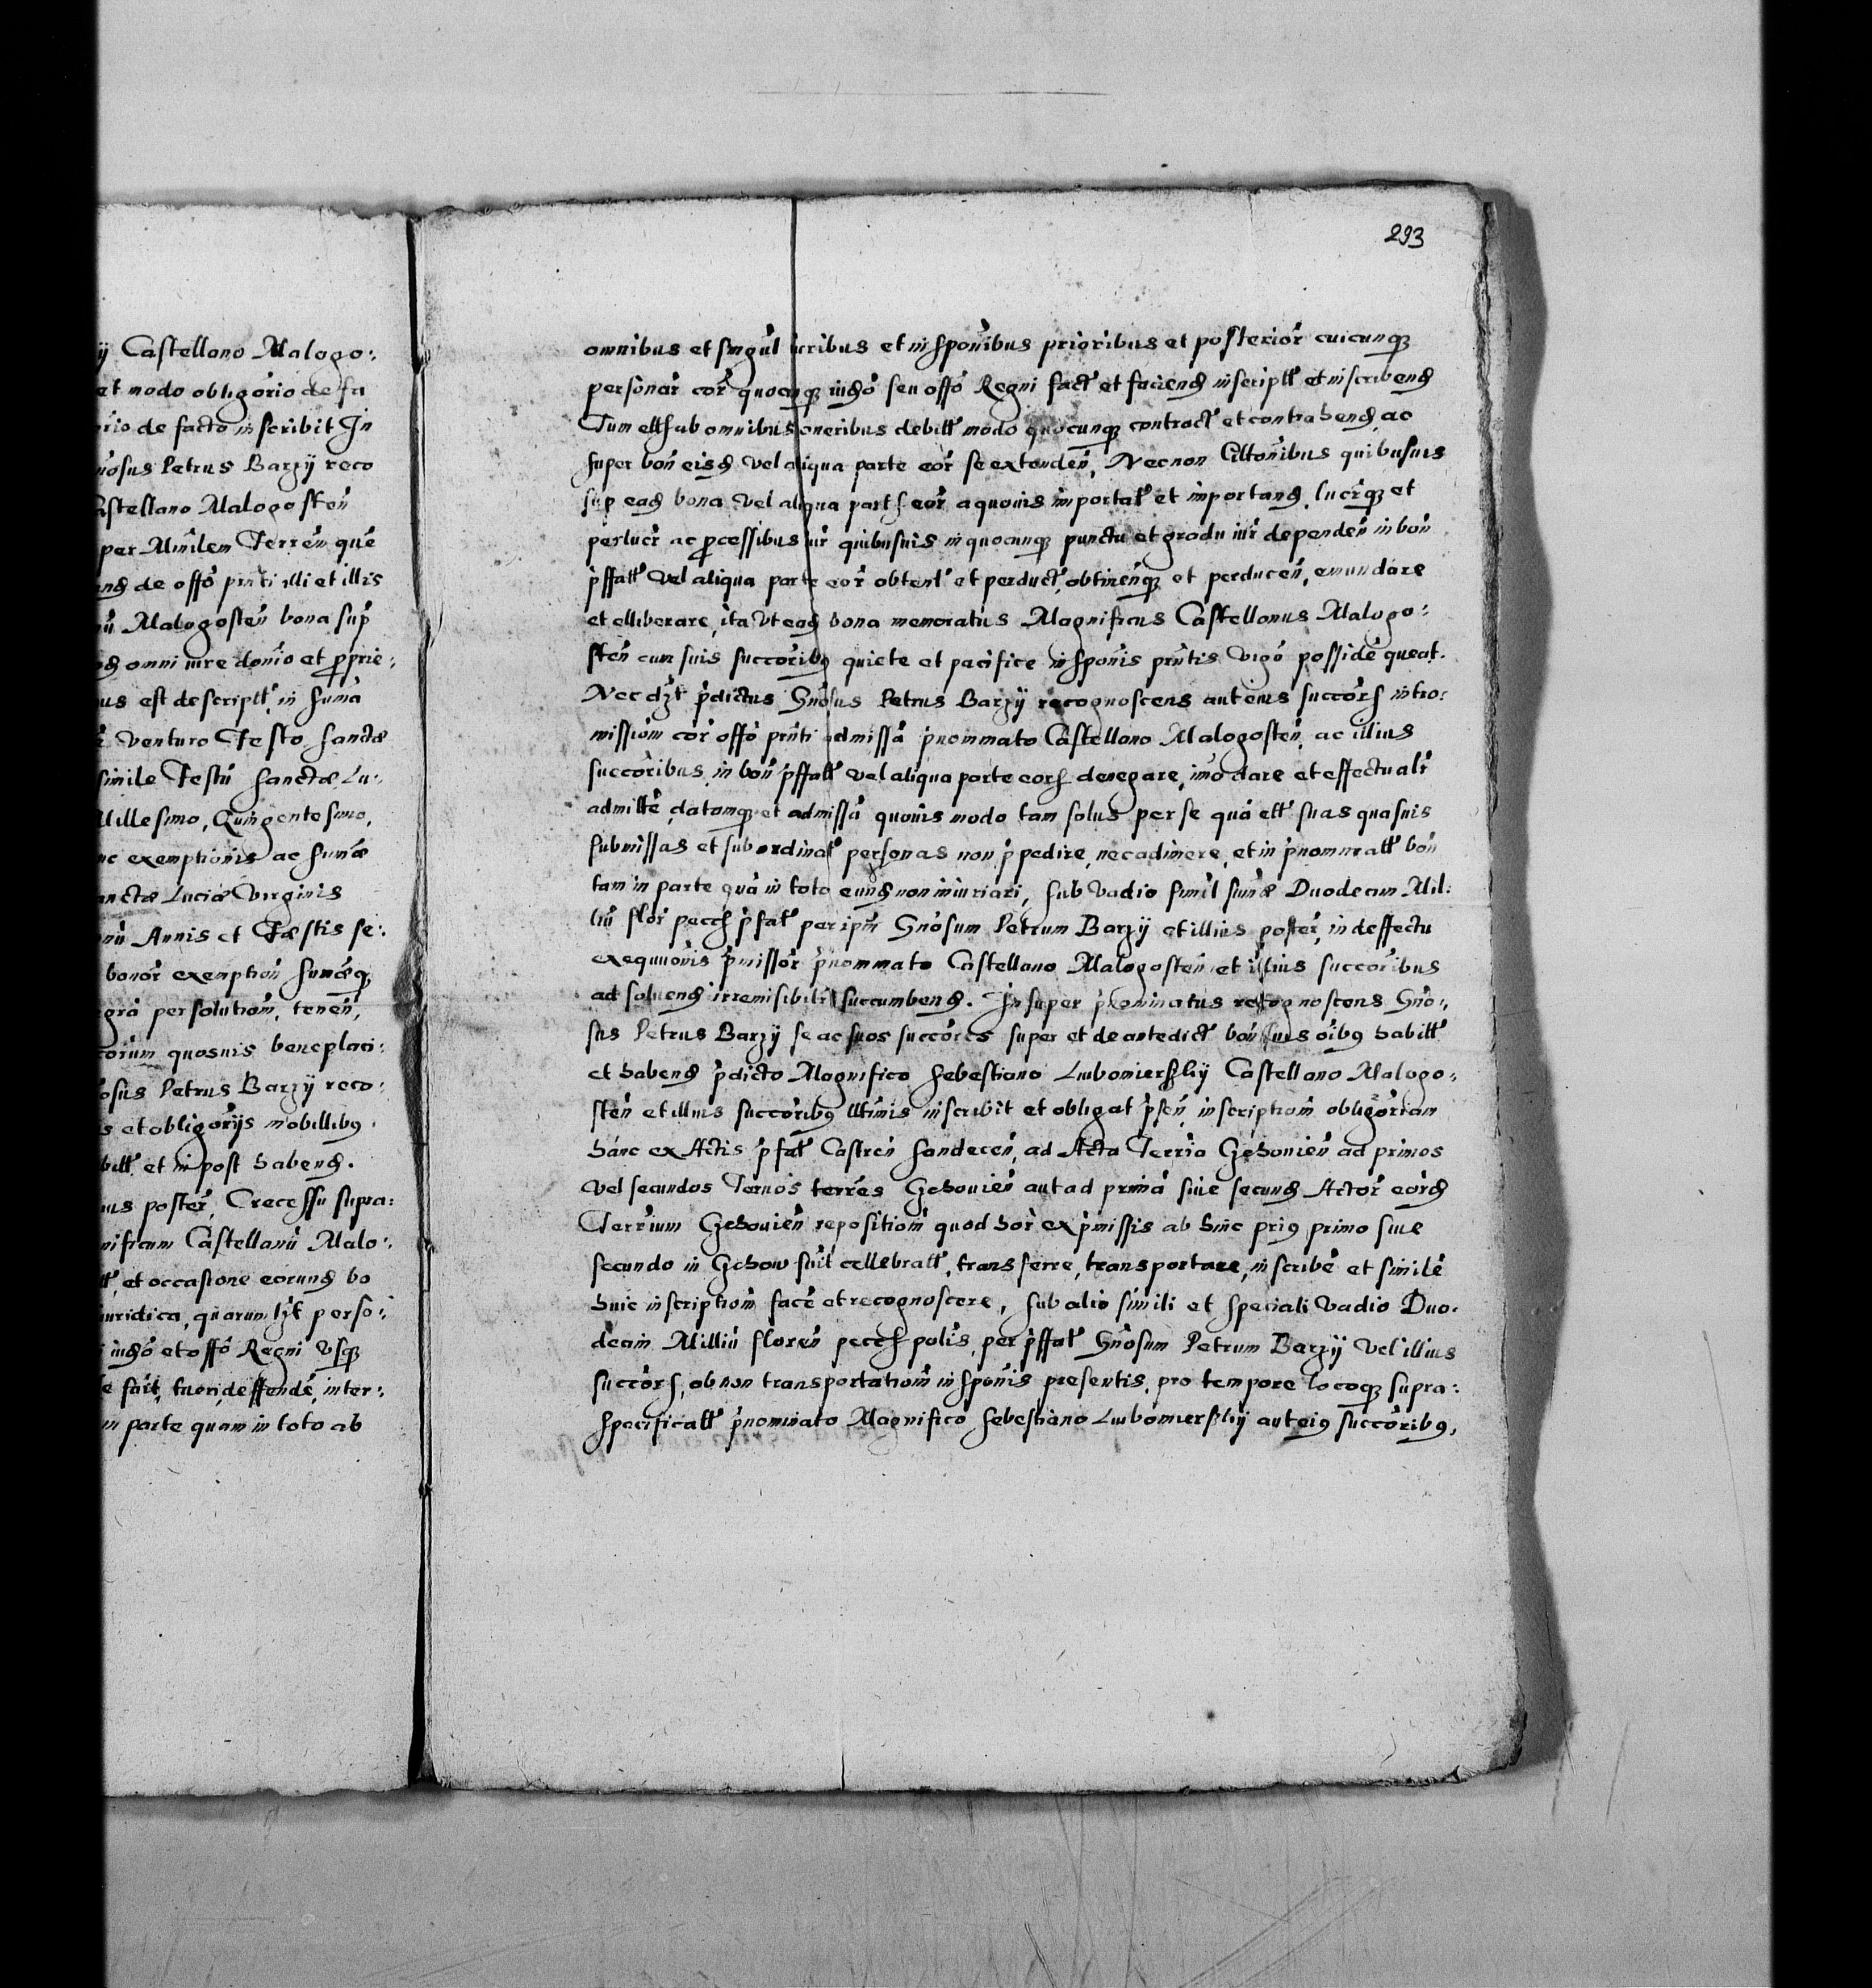 ÿ Castellano Malogo:
et modo obligório de fa
rio de facto inscribit In
nósus Petrus Barzÿ reco
Castellano Malogosten̄
per Minilem Terrén̄ que
end de offó prn̄ti illi et illis
nū Malogosten̄ bona sup̄
omni iure donió et p̱prie:
us est descriptt in Sumā
venturo Festo Sanctæ
simile Festū Sanctæ Lu:
Millesimo, Quingentesimo,
nc exemptionis ac Sum̄æ
anctæ Luciæ Virginis
nū Annis et Fæstis se:
bonor̄ exemption̄ Sumæq
gra persolutiom̄, tenen̄,
torum quosuis beneplaci:
osus Petrus Barzÿ reco:
s et obligorÿs mobillibꝰ
bitt et in post habend.
ius poster̄, Crecessu supra:
nificum Castellanū Malo:
et occasione eorund bo
iuridica, quarum lzt perso:
iudó et offó Regni Vsq
e fait, tueri, deffende, inter:
in parte quam in toto ab
293
omnibus et singul iuribus et inspon̄ibus prioribus et posterior̄ cuicunq
personar̄ cor̄ quocunq iudó seu offó Regni fact et faciend inscriptt et inscribend
Tum ett sub omnibus oneribus debitt modo quocunq contract et contrahend, ac
super bon̄ eisd vel aliqua parte eor̄ se extenden̄, Necnon Citton̄ibus quibusuis
sup ead bona vel aliqua part eor̄ a quouis importat et importand, lucrq et
perlucr̄ ac p̱cessibus iur̄ quibusuis in quocunq punctu et gradu iur̄ dependen̄ in bon̄
p̄ffatt vel aliqua parte eor̄ obtent et perduct, obtinen̄q et perducen̄, emundare
et elliberare, ita Vt ead bona memoratus Magnificus Castellanus Malogo:
sten̄ cum suis succóribꝰ quiete et pacifice inspon̄is prn̄tis vigó posside queat.
Nec dzt p̄dictus Gn̄osus Petrus Barzÿ recognoscens aut eius succórs intro:
missiom̄ cor̄ offó prn̄ti admissā p̄nominato Castellano Malogosten̄, ac illius
succóribus, in bon̄ p̄ffatt vel aliqua parte eors denegare, imo dare et effectualr̄
admitte, datamq et admissā quouis modo tam solus per se quā ett suas quasuis
submissas et subordinat personas non p̄pedire, nec adimere, et in p̄nominatt bon̄
tam in parte quā in toto eund non iniuriari, sub Vadio simil sum̄æ Duodecim Mil:
liū flor̄ peccs p̄fat per ipm̄ Gn̄osum Petrum Barzÿ et illius poster̄, in deffectu
exequuon̄is p̄missor̄ p̄nominato Castellano Malogosten̄ et illius succóribus
ad soluend irremisibilr̄ succumbend. Insuper p̄nominatus recognoscens Gn̄o:
sus Petrus Barzÿ se ac suos succóres super et de antedict bon̄ suis oib̄ꝰ habitt
et habend p̄dicto Magnifico Sebestiano Lubomierskÿ Castellano Malogo:
sten̄ et illius succóribꝰ lttimis inscribit et obligat p̄sen̄ inscriptiom̄ obligóriam
hanc ex Actis p̄fat Castren̄ Sandecen̄, ad Acta Terria Czchouien̄ ad primos
vel secundos Termós terrés Czchouien̄ aut ad primā siue secund Actor̄ eord
Terrium Czchouien̄ repositiom̄ quod hor̄ ex p̄missis ab hinc priꝰ primo siue
secundo in Czchow fuit cellebratt, transferre, transportare, inscribe et simile
huic inscriptiom̄ face et recognoscere, sub alio simili et speciali Vadio Duo:
decim Milliū floren̄ peccs polis, per p̄ffat Gn̄osum Petrum Barzÿ Vel illius
succórs, ob non transportatiom̄ inspon̄is presentis, pro tempore locoq supra:
specificatt p̄nominato Magnifico Sebestiano Lubomierskÿ aut eiꝰ succóribꝰ,